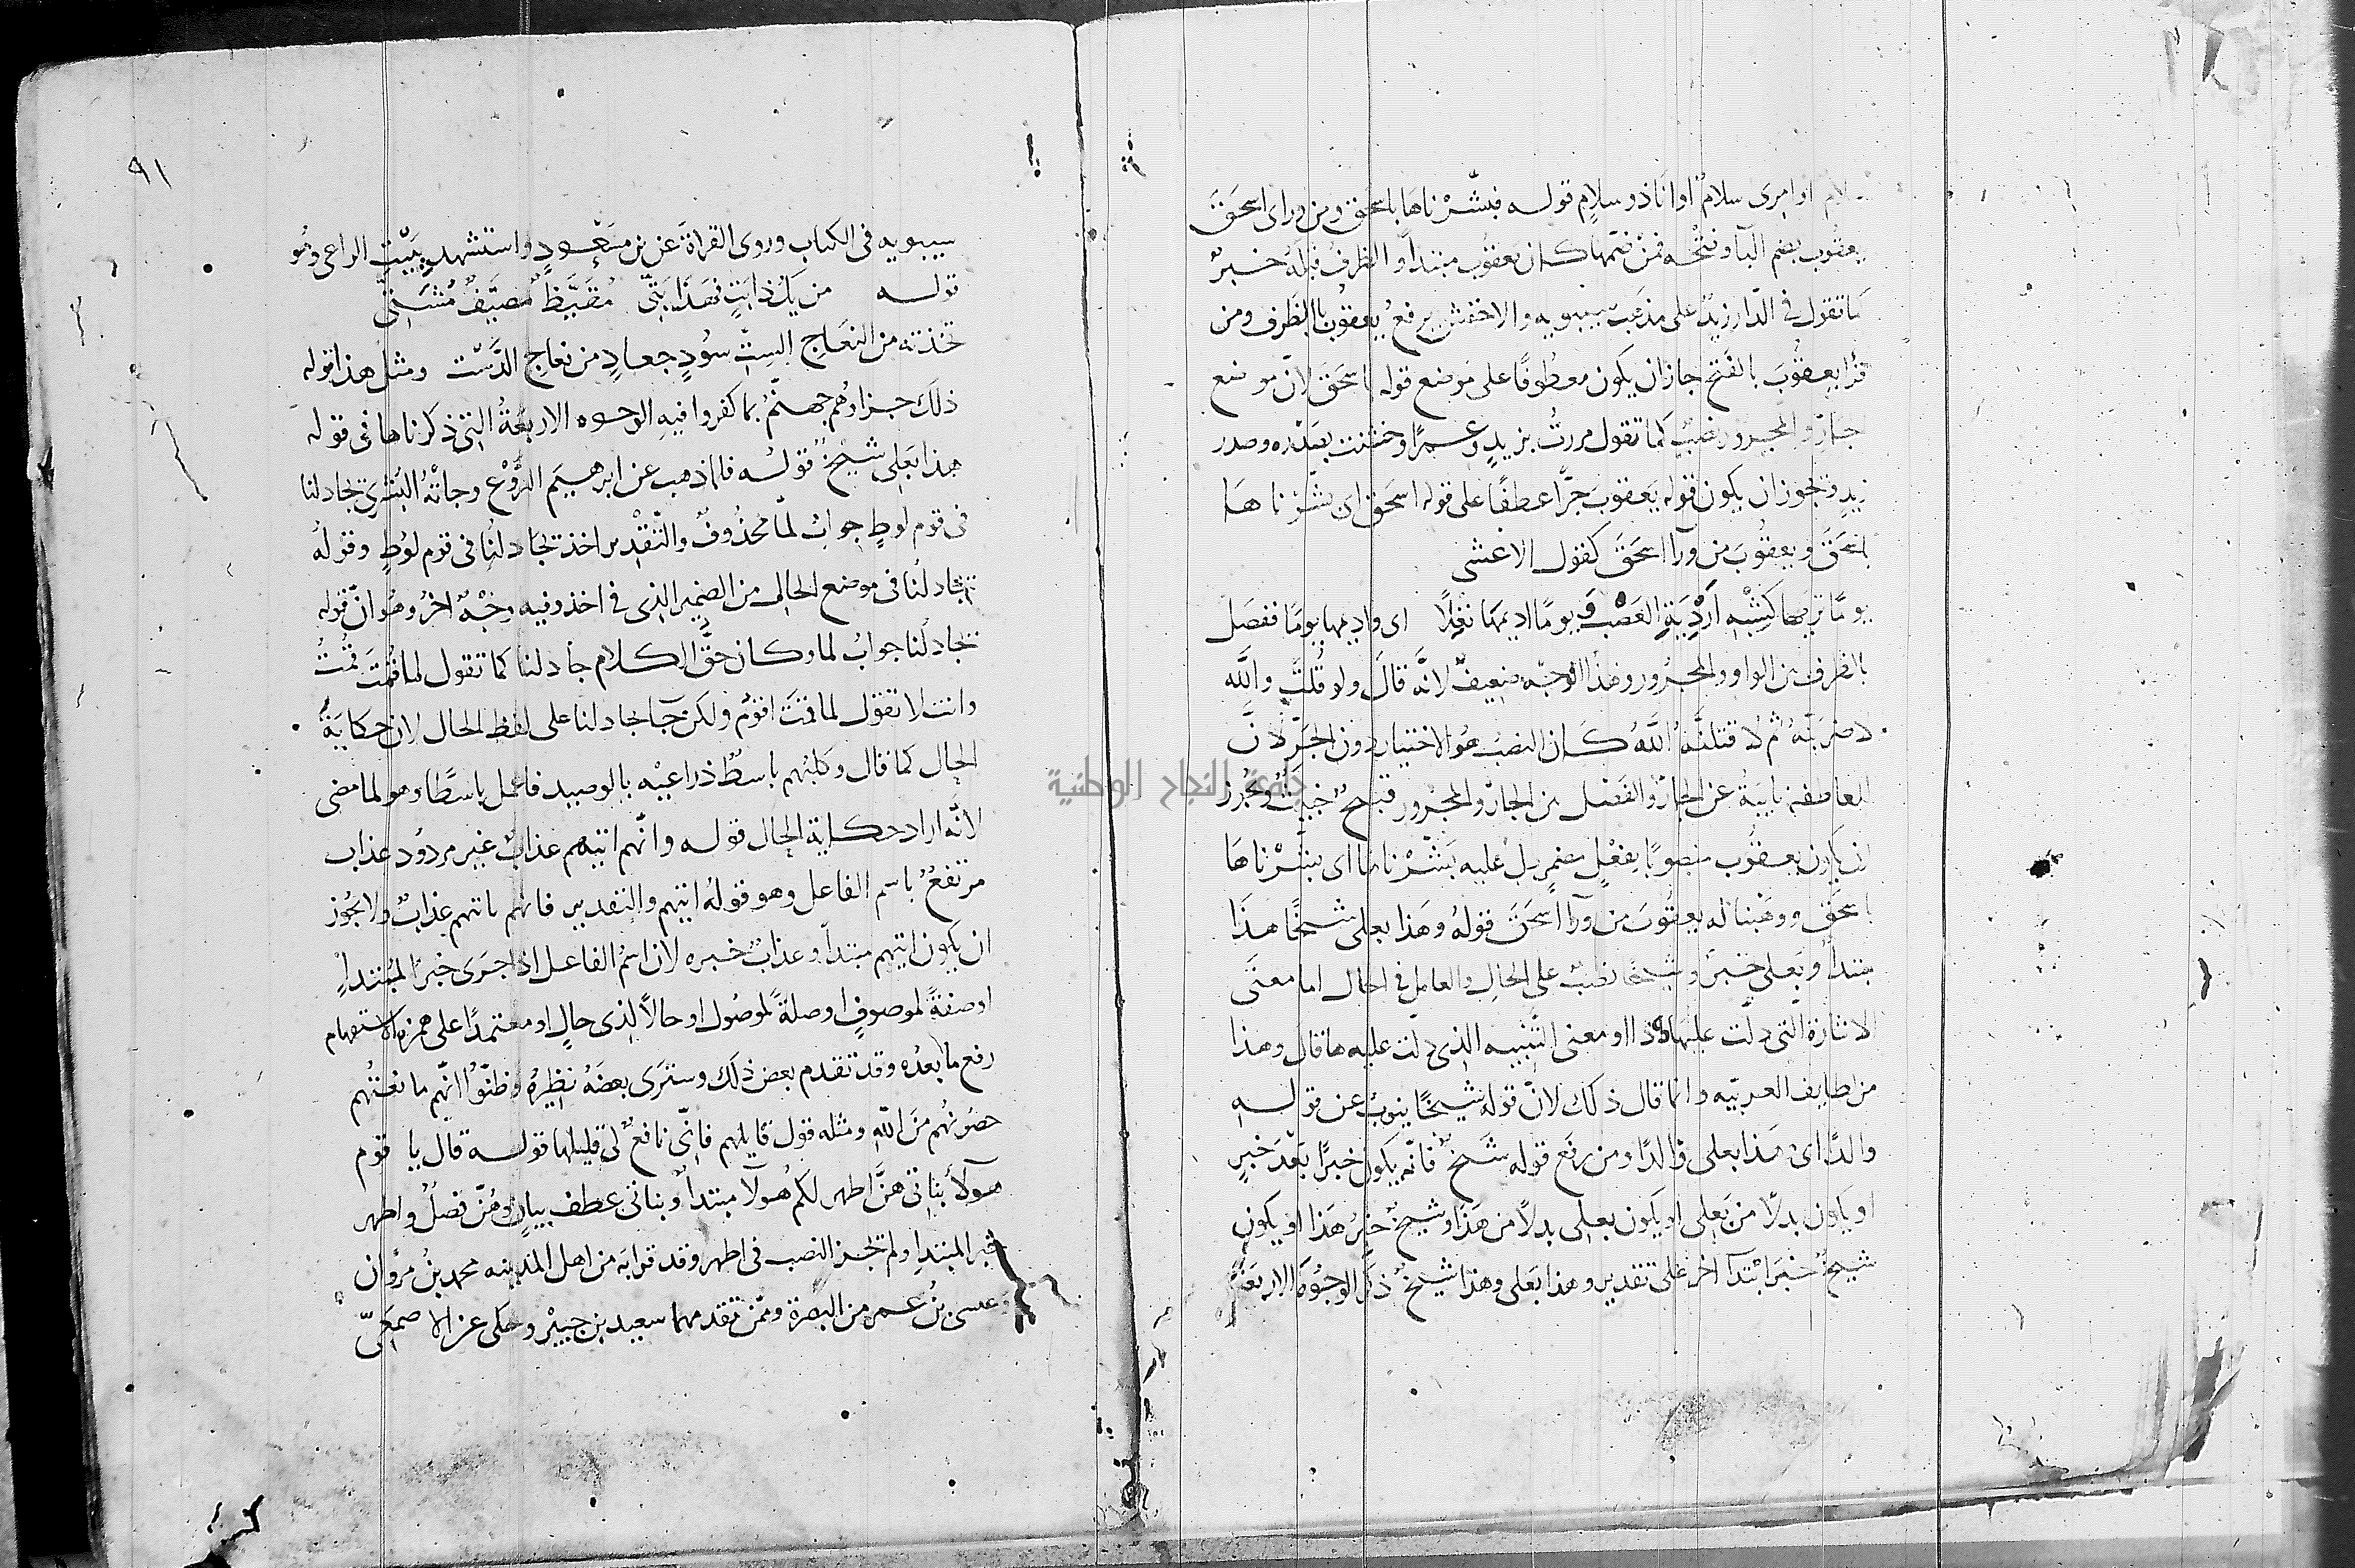 سلام او امرى سلام او انا ذو سلام قوله فبشّرناها باسحق ومن وراى اسحق
يعقوب بضم البآ وفتحه فمن ضمها كان يعقوب مبتدأ والظرف قبله خبر
كما تقول فى الدار زيد على مذهب سيبويه والاخفش يرفع يعقوب بالظرف ومن
قرا يعقوب بالفتح جاز ان يكون معطوفا على موضع قوله باسحق لان موضع
الجار والمجرور نصب كما تقول مررت بزيد وعمرا وخشنت بصدره وصدر
زيد ويجوز ان يكون قوله يعقوب جرّا عطفا على قوله اسحق اى بشرناها
باسحق ويعقوب من ورآ اسحق كقول الاعشى
يوما تريها كشبه اردية العصب ويوما اديمها نغلا اى واديمها يوما ففصل
بالظرف بين الواو والمجرور وهذا الوجه ضعيف لانه قال ولو قلت والله
لاضربنه ثم لاقتلنه الله كان النصب هو الاختيار دون الجر لان
العاطفة نايبة عن الجار والفصل بين الجار والمجرور قبيح خبيث ويجوز
ان يكون يعقوب منصوبا بفعل مضمر يدل عليه بشرناها اى بشرناها
باسحق ووهبنا له يعقوب من ورآ اسحق قوله وهذا بعلى شيخا هذا
مبتدأ وبعلى خبر وشيخا نصب على الحال والعامل فى الحال اما معنى
الاشارة التى دلت عليها ذا او معنى التنبيه الذى دلت عليه ها قال وهذا
من لطايف العربيه وانما قال ذلك لان قوله شيخا ينوب عن قوله
والدا اى هذا بعلى والدا ومن رفع قوله شيخ فانه يكون خبرا بعد خبر
او يكون بدلا من بعلى او يكون بعلى بدلا من هذا وشيخ خبر هذا او يكون
شيخ خبر ابتدآ اخر على تقدير وهذا بعلى وهذا شيخ ذكر الوجوه الاربعة
٩١
سيبويه فى الكتاب وروى القراة عن بن مسعود واستشهد ببيت الراعى وهو
قوله من يك ذا بت فهذا بتّى مقيظ مصيف مشتى
تخذته من النعاج الست سود جعاد من نعاج الدست ومثل هذا قوله
ذلك جزاوهم جهنم بما كفروا فيه الوجوه الاربعة التى ذكرناها فى قوله
هذا بعلى شيخ قوله فلما ذهب عن ابرهيم الروع وجاته البشرى يجادلنا
فى قوم لوط جواب لما محذوف والتقدير اخذ يجادلنا فى قوم لوط وقوله
يجادلنا فى موضع الحال من الضمير الذى فى اخذ وفيه وجه اخر وهو ان قوله
يجادلنا جواب لما وكان حق الكلام جادلنا كما تقول لما قمت قمت
وانت لا تقول لما قمت اقوم ولكن جا يجادلنا على لفظ الحال لان حكاية
الحال كما قال وكلبهم باسط ذراعيه بالوصيد فاعمل باسطا وهو لما مضى
لانه اراد حكاية الحال قوله وانهم اتيهم عذاب غير مردود عذاب
مرتفع باسم الفاعل وهو قوله اتيهم والتقدير فانهم ياتهم عذاب ولا يجوز
ان يكون اتيهم مبتدأ وعذاب خبره لان اسم الفاعل اذا جرى خبرا لمبتدأ
او صفة لموصوف او صلة لموصول او حالا لذى حال او معتمدا على همزة الاستفهام
رفع ما بعده وقد تقدم بعض ذلك وسترى بعضه نظيره وظنوا انهم مانعتهم
حصونهم من الله ومثله قول قايلهم فانى نافع لى قليلها قوله قال يا قوم
هولآ بناتى هن اطهر لكم هولآ مبتدأ وبناتى عطف بيان وهن فصل واطهر
خبر المبتدا ولم يجز النصب فى اطهر وقد قرا به من اهل المدينه محمد بن مروان
وعيسى بن عمر من البصرة وممن تقدمهما سعيد بن جبير وحكى عن الاصمعى
جامعة النجاح الوطنية